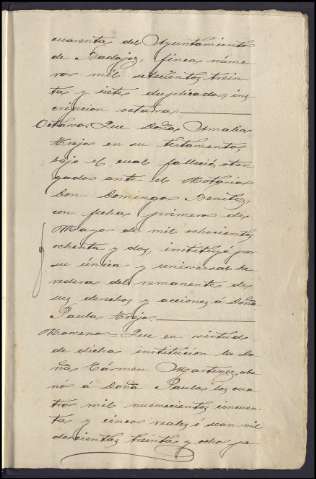 cuarenta del Ayuntamiento
de Badajoz, finca núme
ro mil setecientos trein
ta y siete duplicado, ins
cripcion octava.
Octavo. Que Doña Amalia
Trejo en su testamento
bajo el cual falleció, otor
gado ante el Notario
Don Domingo Benitez
con fecha primero de
Mayo de mil ochocientos
ochenta y dos, instituyó por
su única y universal he
redera del remanente de
sus derechos y acciones á Doña
Paula Trejo.
Noveno. Que en virtud
de dicha institucion la Do
ña Cármen Martinez, abo
nó á Doña Paula los cua
tro mil novecientos cincuen
ta y cinco reales ó sean mil
doscientas treinta y ocho pe